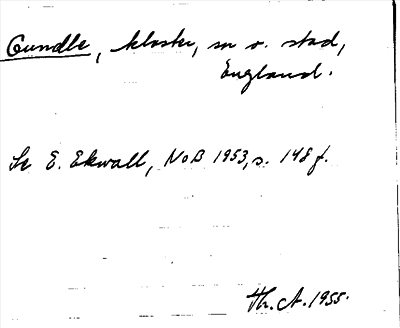 Oundle, kloster, sn o. stad,
England.
Se E. Ekwall, NoB 1953, s. 148 f.
Th. A. 1955.